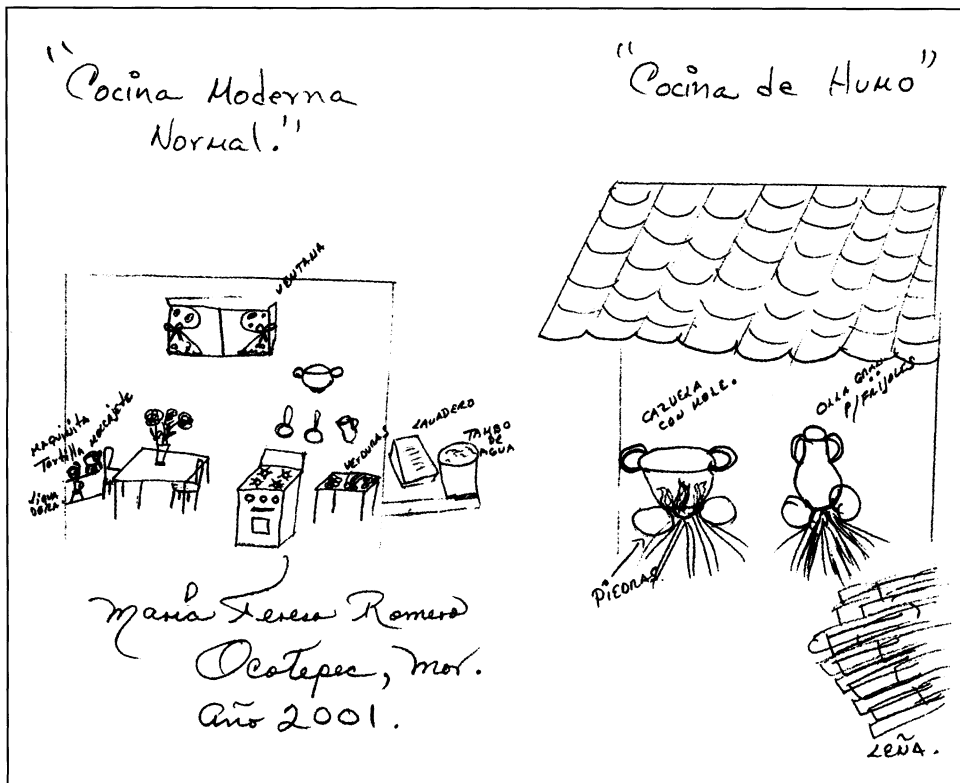 "Cocina Moderna
Normal."
"Cocina de Humo"
VENTANA
MAQUINITA
Tortilla
MOLCAJETE
LICUA
DORA
VERDURAS
LAVADERO
TAMBO
DE
AGUA
CAZUELA
CON MOLE.
OLLA
P/FRIJOLES
PIEDRAS
LEÑA.
María Teresa Romero
Ocotepec, Mor.
Año 2001.